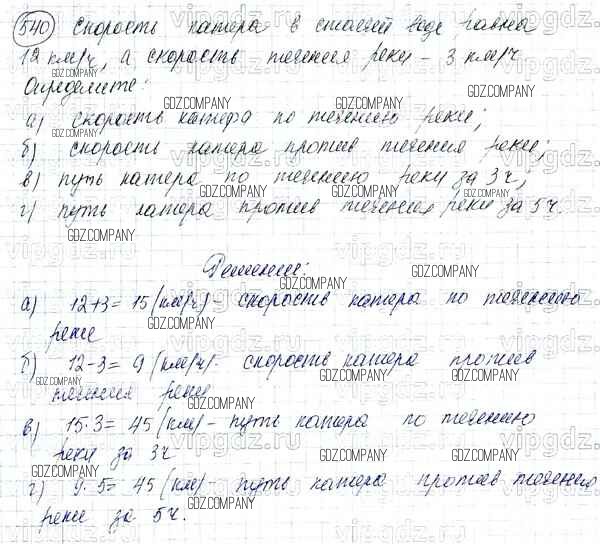 540 Скорость катера в стоячей воде равна
12 км/ч, а скорость течения реки – 3 км/ч
Определите:
а) скорость катера по течению реки;
б) скорость катера против течения реки;
в) путь катера по течению реки за 3ч;
г) путь катера против течения реки за 5ч.
Решение:
а) 12+3= 15 (км/ч)- скорость катера по течению
реки
б) 12-3= 9 (км/ч)- скорость катера против
течения реки
в) 15·3= 45 (км) - путь катера по течению
реки за 3ч
г) 9·5= 45 (км)- путь катера против течения
реки за 5ч.